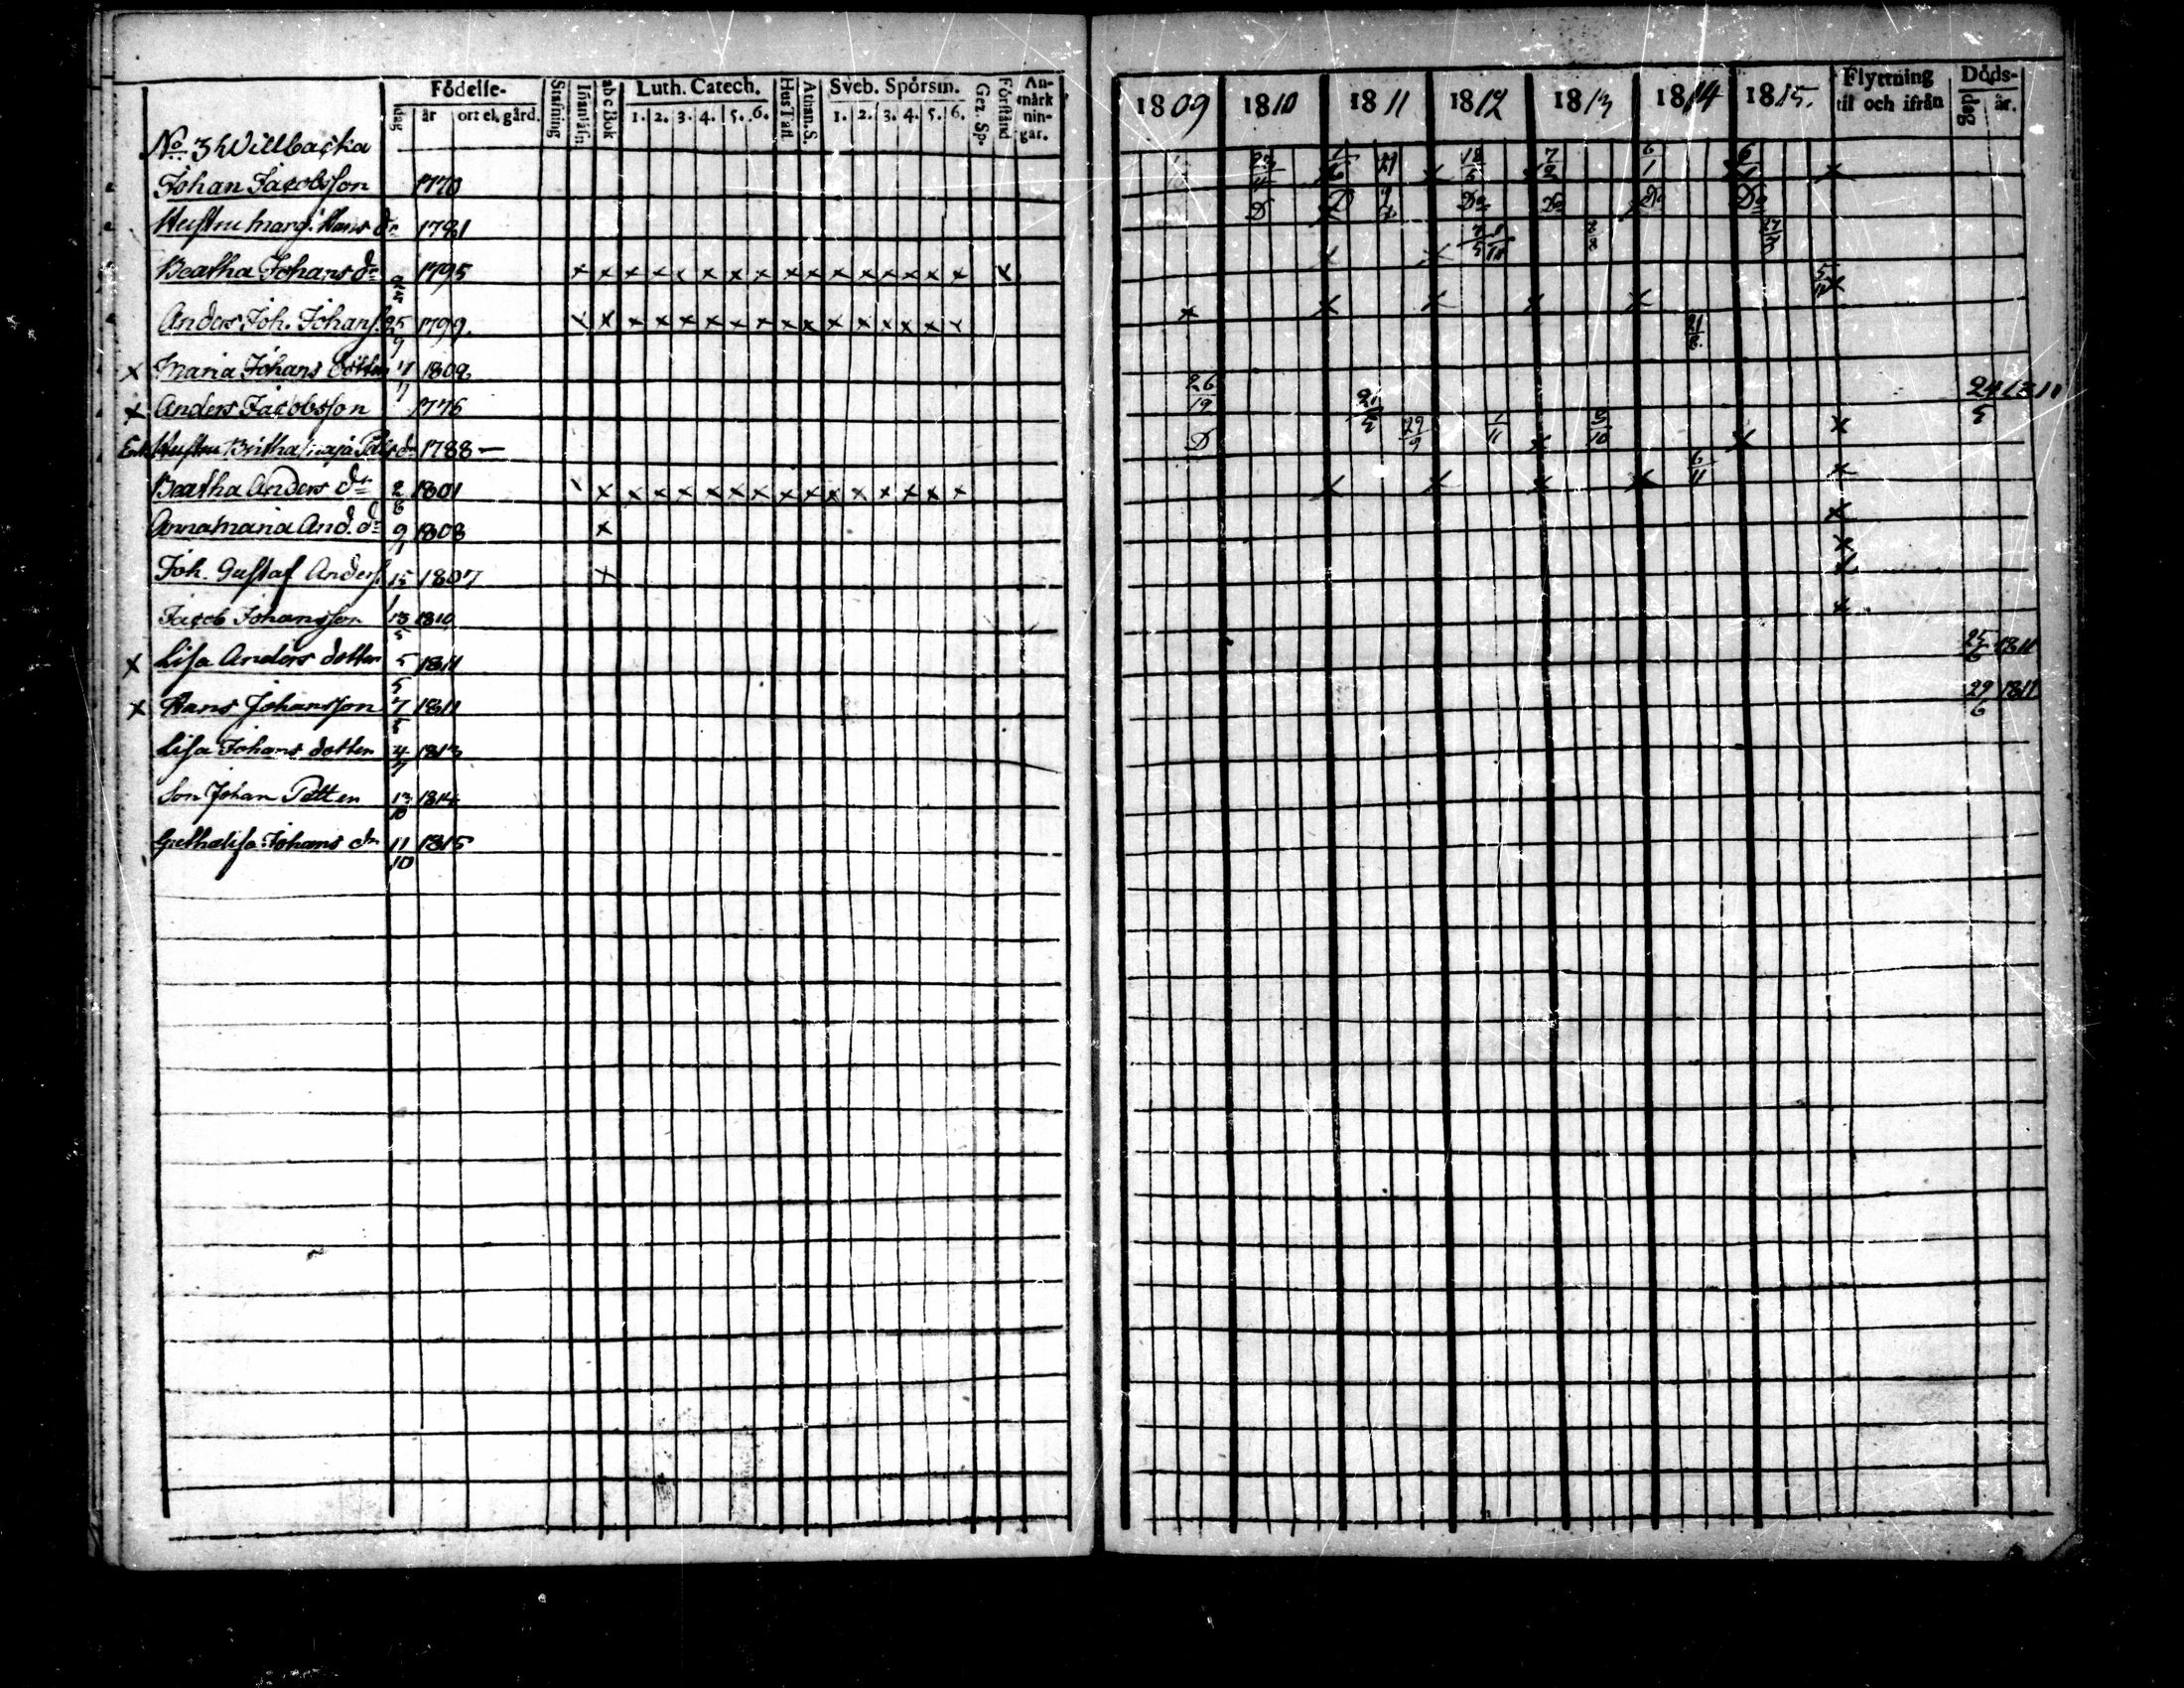 Födelse- Stafning Inanläsn. abc Bok Luth. Catech. Hus Tafl. Athan. S. Sveb. Spörsm. Gez. Sp. Förstånd An-märk-nin-gar.
dag år ort el. gård. 1. 2. 3. 4. 5. 6. 1. 2. 3. 4. 5. 6.
No 3 Willbacka
Johan Jacobsson 1770
Hustru Marg. Hans dr 1781
Beatha Johans dr 1795 x x x x x x x x x x x x x x x x x
Anders Joh. Johans. 25/9 1799. x x x x x x x x x x x x x x x x
x Maria Johans dotter 17 1809.
x Anders Jacobsson 1776
Enk. Hustru Britha Maja Pets dr 1788 —
Beatha Anders dr 2/8 1801 x x x x x x x x x x x x x x x x
Annamaria And. dr 9/1 1803 x
Joh. Gustaf Anders. 15/1 1807 x
Jacob Johansson 13/5 1810
x Lisa Anders dotter 5/5 1811
x Hans Johansson 7/5 1811
Lisa Johans dotter 4/7 1813
Son Johan Petter 13/10 1814
Gretha Lisa Johans dr 11/10 1815
1809 1810 1811 1812 1813 1814 1815. Flyttning til och ifrån Döds-
dag år.
23/4 1/6 21 18/5 7/2 6/1 6/1
D D Do Do Do Do
21/2
26/19 21/5 24/5 1811
D 29/9 1/11 3/10
6/11
25/6 1811
29/6 1811